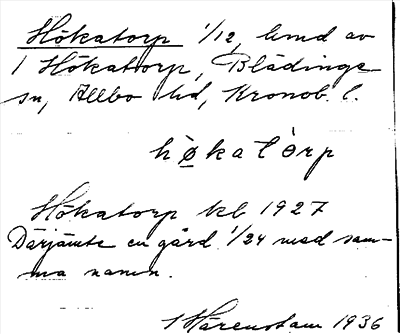 Hökatorp 1/12, lmd av
1 Hökatorp, Blädinge
sn, Allbo hd, Kronob. l.
hökatòrp
Hökatorp kb 1927
Därjämte en gård 1/24 med sam-
ma namn.
Härenstam 1936